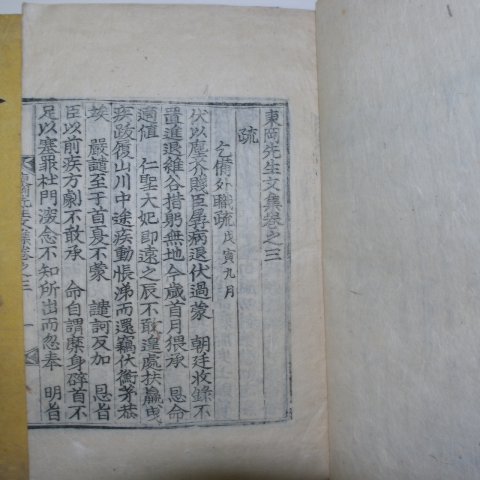 東岡先生文集卷之三
疏
乞備外職疏 戊寅九月
伏以塵芥賤臣孱病退伏過蒙 朝廷收錄不
置進退維谷措躬無地今歲首月猥承 恩命
適値 仁聖大妃卽遠之辰不敢遑處扶羸曳
疾跋履山川中途疾動悵涕而還竊伏衡茅恭
竢 嚴譴至于首夏不蒙 譴訶反加 恩旨
臣以前疾方劇不敢承 命自謂糜身碎首不
足以塞罪杜門凌念不知所出而忽奉 明旨